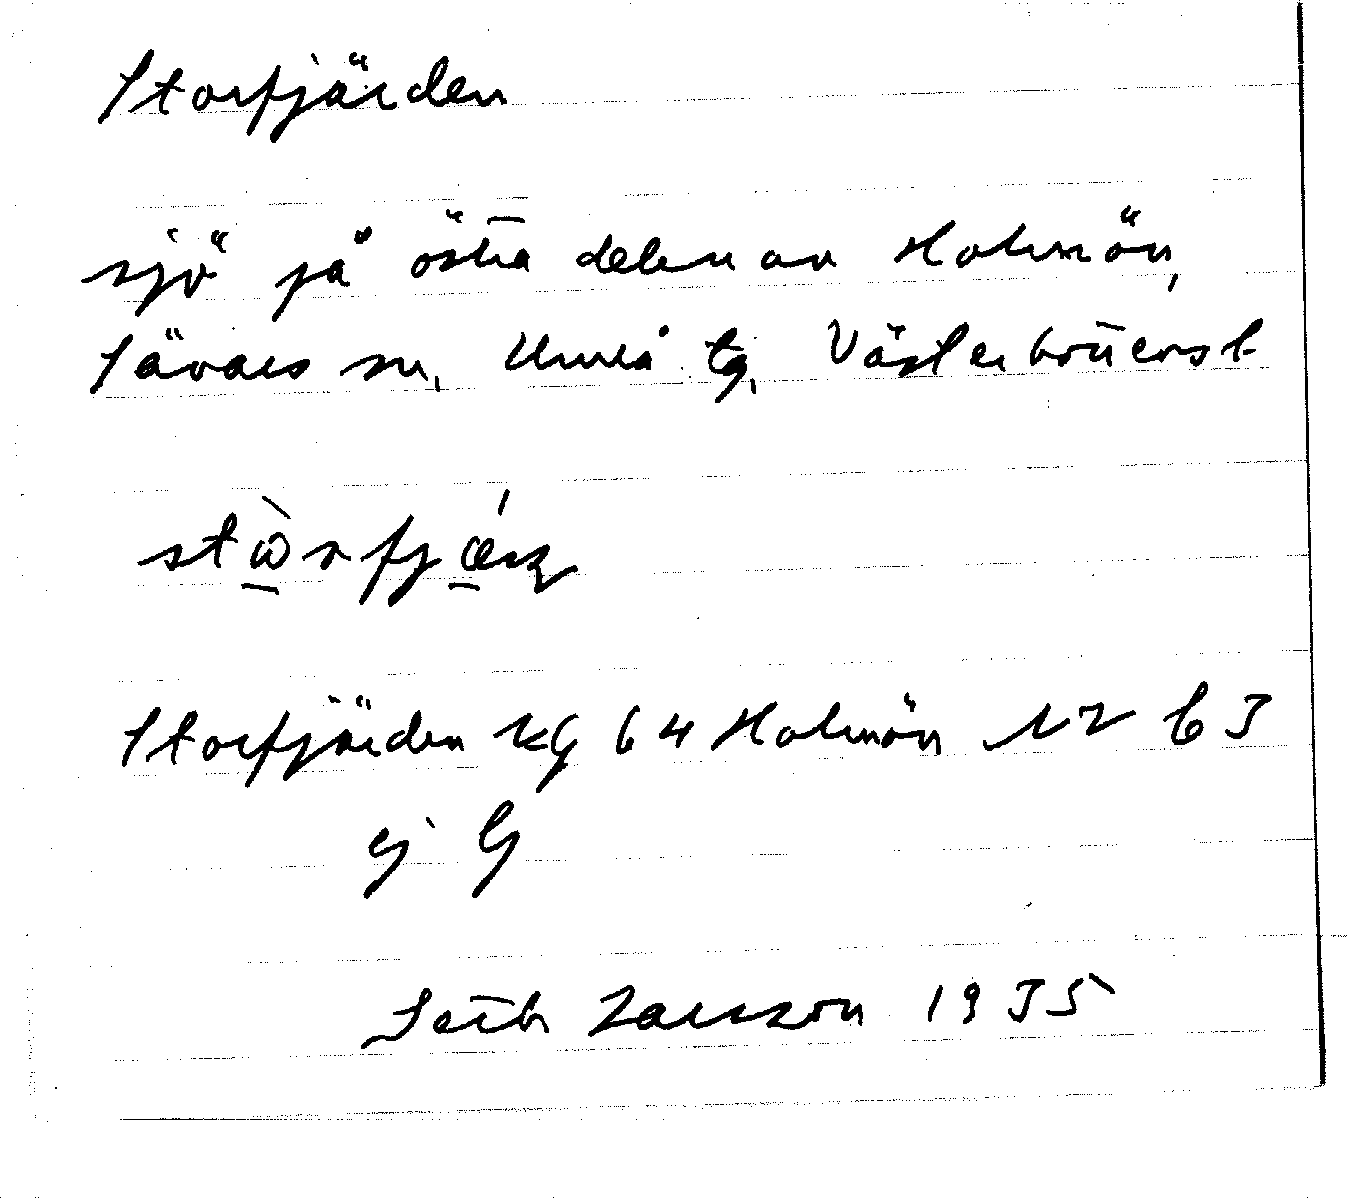 Storfjärden
sjö på östra delen av Holmön,
Sävars sn, Umeå tg, Västerbottens l.
Storfjärden kg 64 Holmön
ej G
Seth Larsson 1935